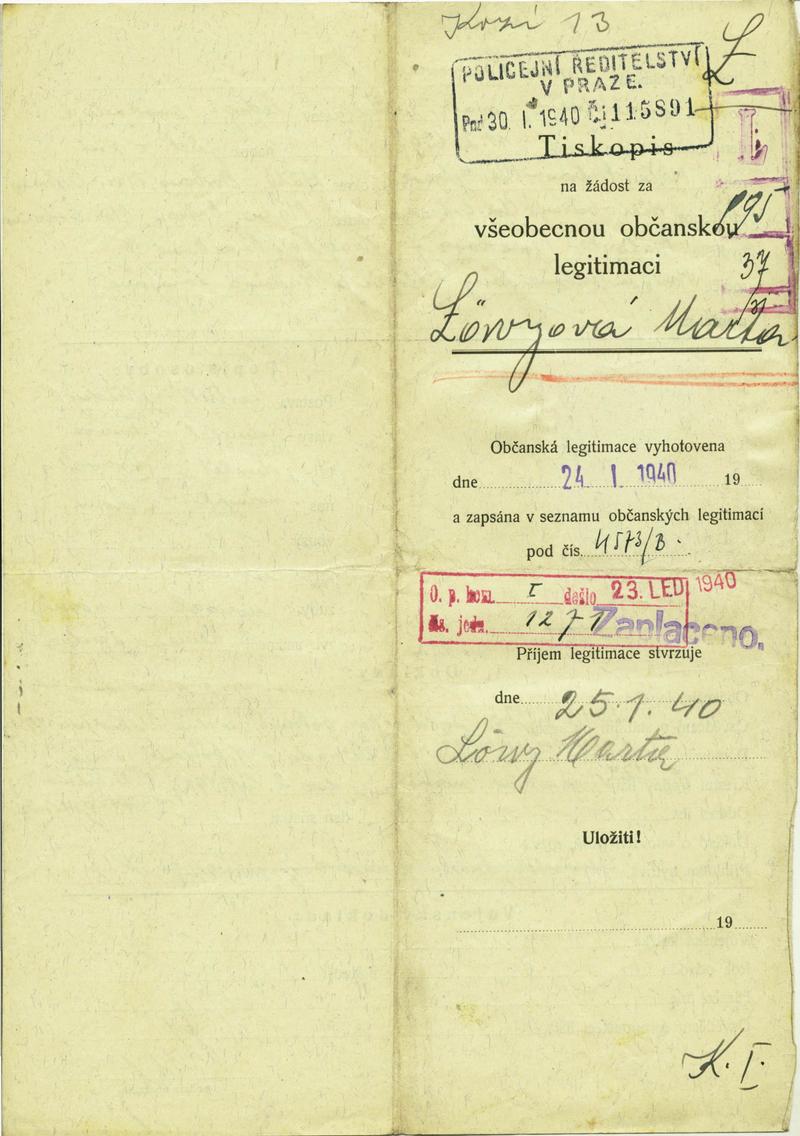 Kozí 13
Ł
POLICEJNÍ ŘEDITELSTVÍ
V PRAZE.
30. I. 1940 Čj 115891
Tiskopis
na žádost za
všeobecnou občanskou
legitimaci
37
Löwyová Marta
Občanská legitimace vyhotovena
dne 24. I. 1940 19
a zapsána v seznamu občanských legitimací
pod čís. 4573/B.
O. p. kom. I došlo 23. LED 1940
čís. jedn. 1271 Zaplaceno.
Příjem legitimace stvrzuje
dne 25.1.40
Löwy Marta
Uložiti!
19
K. I.